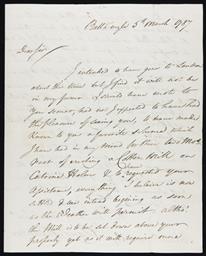 5th March 1787
Dear Sir,
I intended to have gone to London
about this time but I find it will not be
in my power. I should have wrote to
you sooner, had not I expected to have had
the pleasure of seeing you, to have made
known to you a favorite scheme which
I have had in my mind for these two
past of erecting a Cotton Mill on
&
assistance, every thing I believe is now
settled & we intend beginning as soon
as the Weather will permit altho'
the Mill is to be set down above your
property yet as it will require some